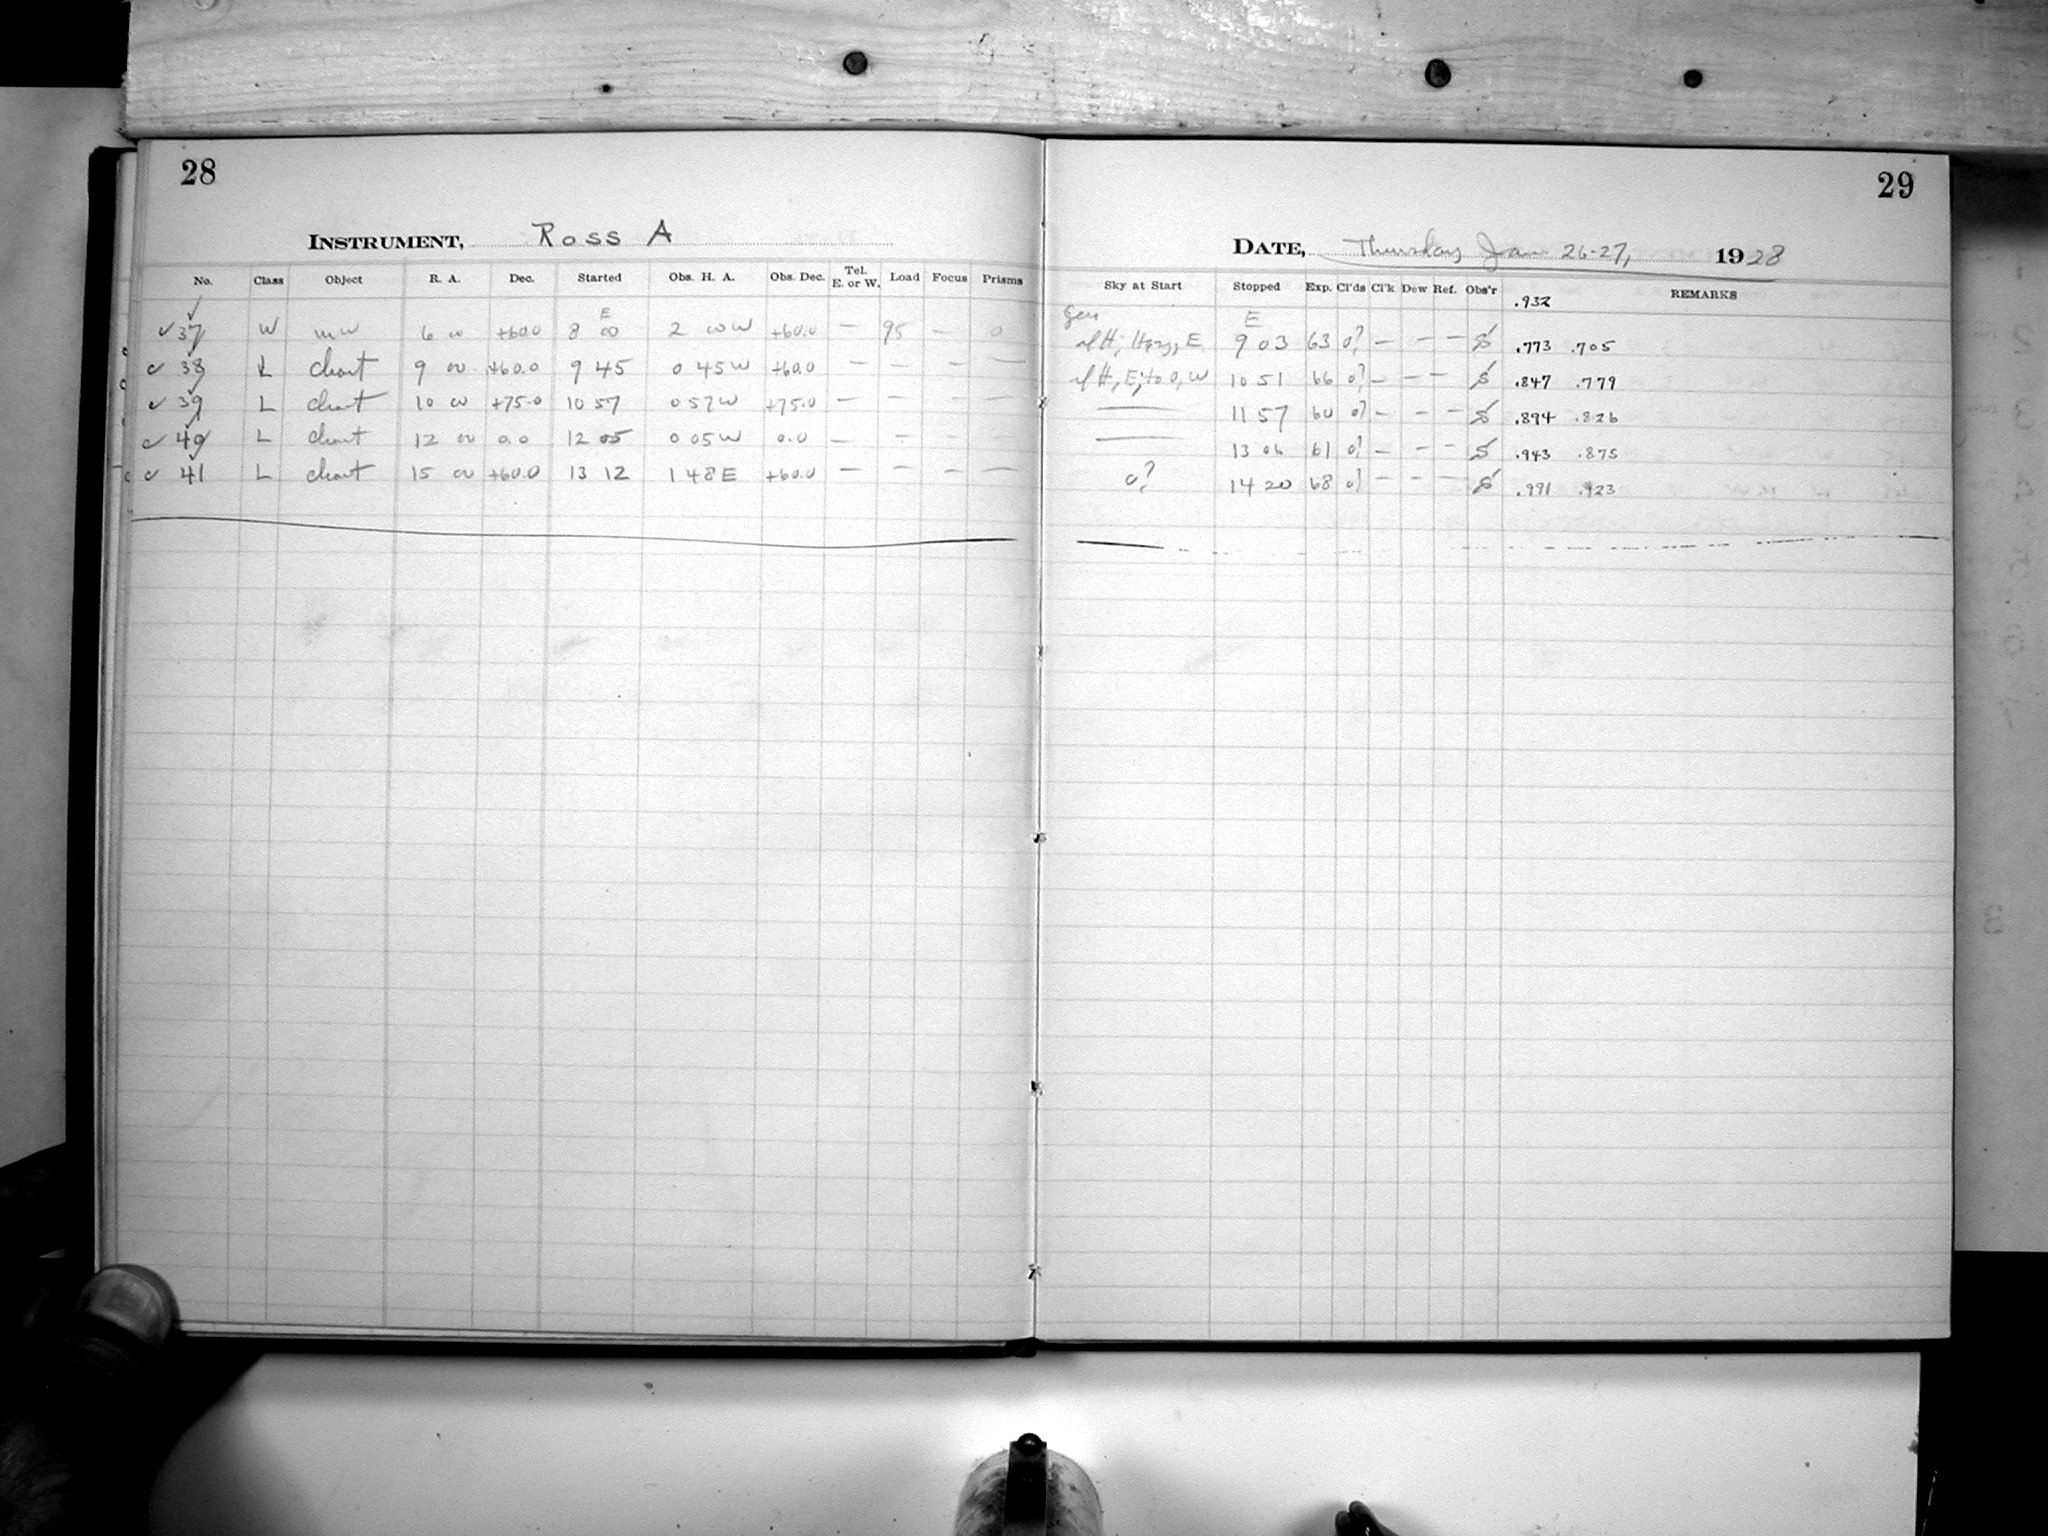 28
INSTRUMENT, Ross A
No. Class Object R. A. Dec. Started Obs. H. A. Obs. Dec. Tel. E. or W. Load Focus Prisms
E
37 W mw 6 00 +60.0 8 00 2 00 W +60.0 — 95 — 0
38 L chart 9 00 +60.0 9 45 0 45 W +60.0 — — — —
39 L chart 10 00 +75.0 10 57 0 57 W +75.0 — — — —
40 L chart 12 00 0.0 12 05 0 05 W 0.0 — — — —
41 L chart 15 00 +60.0 13 12 1 48 E +60.0 — — — —
29
DATE, Thursday Jan 26-27, 1928
Sky at Start Stopped Exp. Cl'ds Cl'k Dew Ref. Obs'r REMARKS
.932
E
Hazy, E 9 03 63 0? — — — S .773 .705
10 51 66 0? — — — S .847 .779
—— 11 57 60 0? — — — S .894 .826
—— 13 06 61 0? — — — S .943 .875
0? 14 20 68 0? — — — S .991 .923